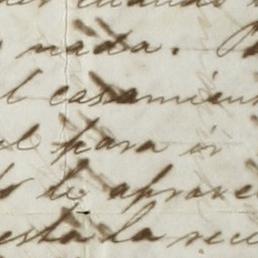 cuando
nada.
el casamien
el para ir
o le aprove
esta la rece